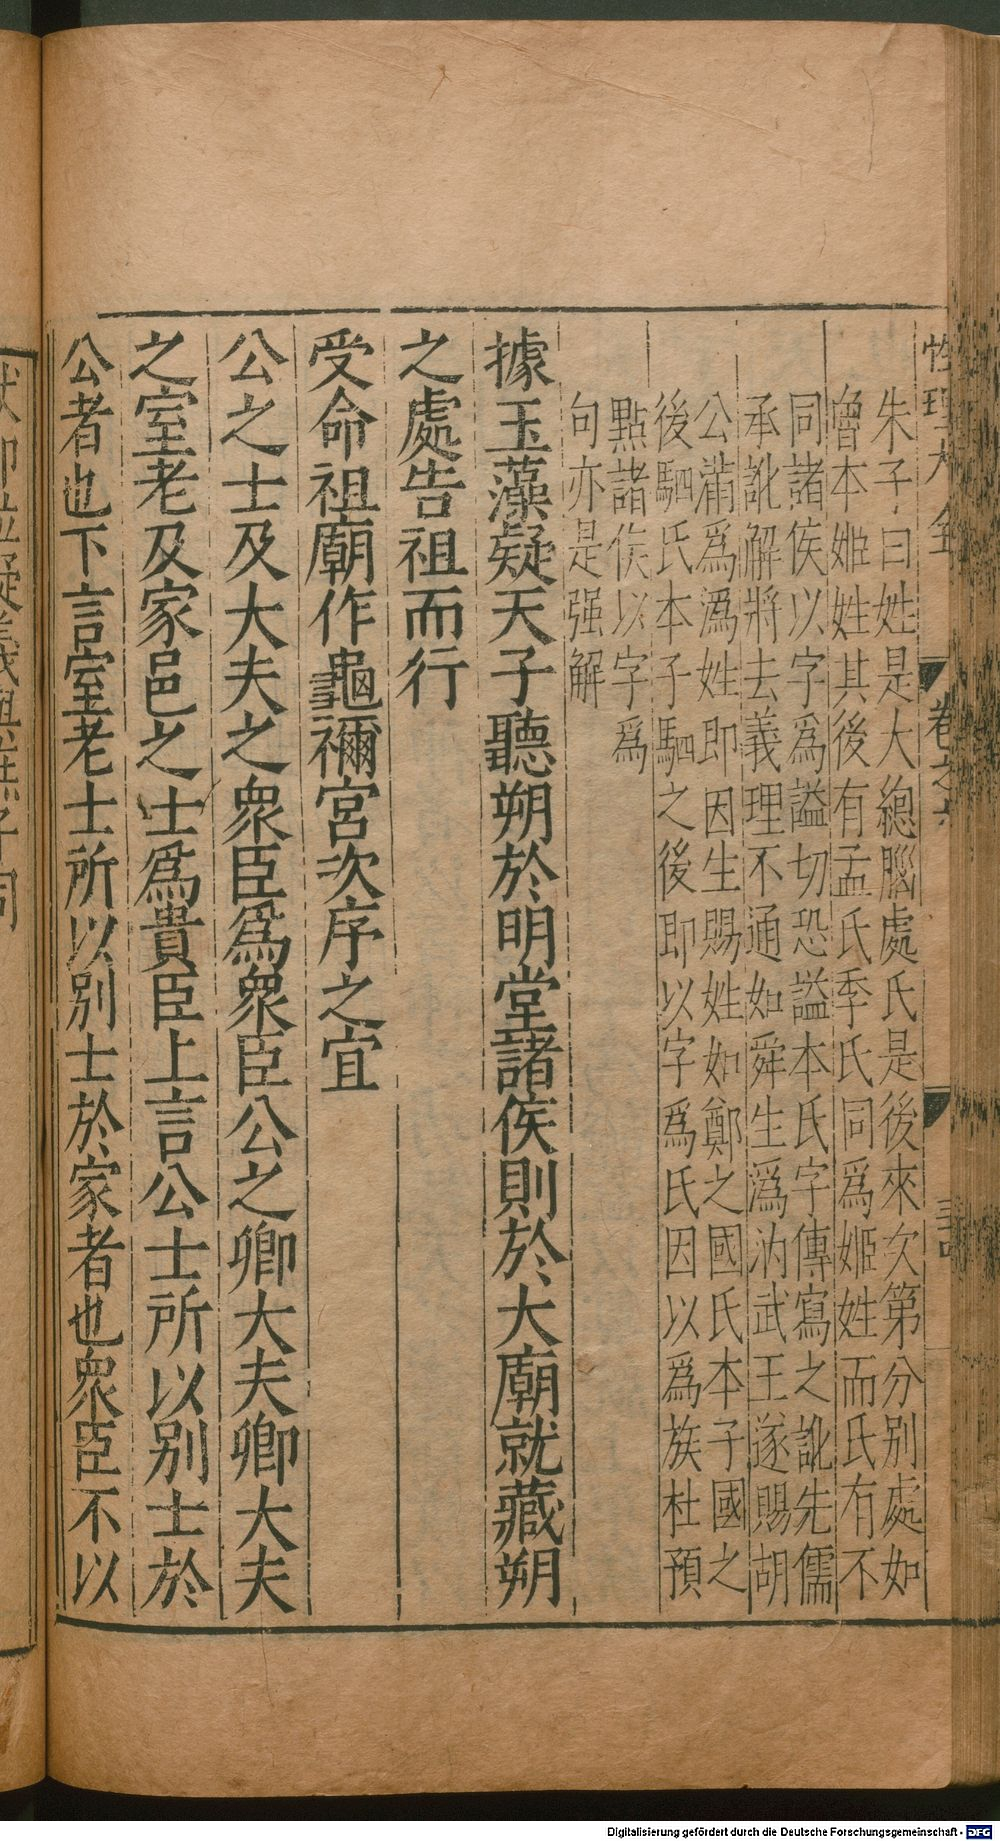 性理大全
卷之六
朱子曰姓是大總腦處氏是後來次第分別處如
魯本姬姓其後有孟氏季氏同爲姬姓而氏有不
同諸侯以字爲謚切恐謚本氏字傳寫之訛先儒
承訛解將去義理不通如舜生爲汭武王遂賜胡
公滿爲嬀姓即因生賜姓如鄭之國氏本子國之
後駟氏本子駟之後即以字爲氏因以爲族杜預
點諸侯以字爲
句亦是强解
據玉藻疑天子聽朔於明堂諸侯則於大廟就藏朔
之處告祖而行
受命祖廟作龜禰宮次序之宜
公之士及大夫之衆臣爲衆臣公之卿大夫卿大夫
之室老及家邑之士爲貴臣上言公士所以別士於
公者也下言室老士所以別士於家者也衆臣不以
Digitalisierung gefördert durch die Deutsche Forschungsgemeinschaft - DFG